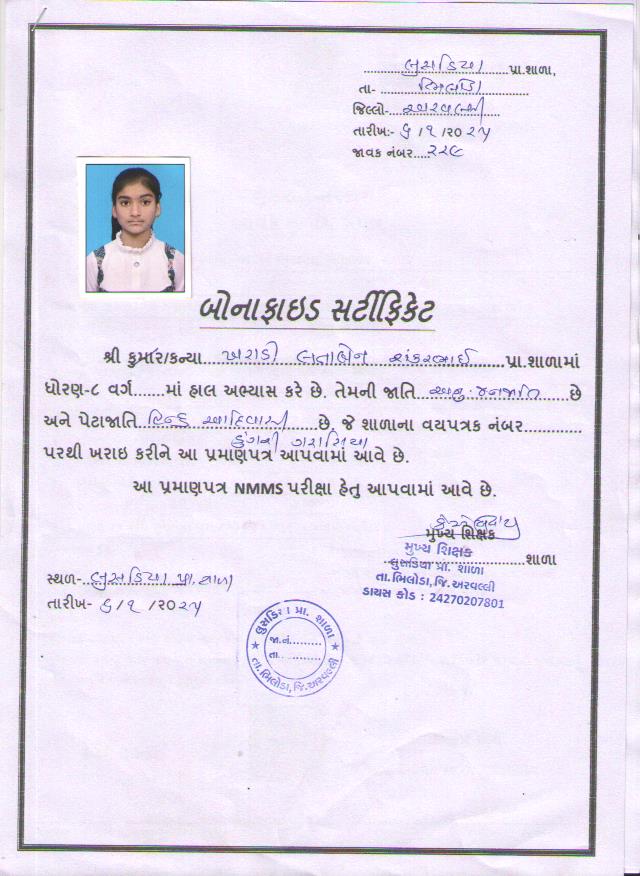 લુસડિયા પ્રા.શાળા,
તા- ભિલોડા
જિલ્લો- અરવલ્લી
તારીખ:- ૬/૧/૨૦૨૫
જાવક નંબર.....૨૨૯
બોનાફાઇડ સર્ટીફિકેટ
શ્રી કુમાર/કન્યા ખરાડી લતાબેન શંકરભાઈ પ્રા.શાળામાં
ધોરણ-૮ વર્ગ.......માં હાલ અભ્યાસ કરે છે. તેમની જાતિ અનુ. જનજાતિ છે
અને પેટાજાતિ હિન્દુ આદિવાસી છે. જે શાળાના વયપત્રક નંબર............
ડુંગરી ગરાસિયા
પરથી ખરાઇ કરીને આ પ્રમાણપત્ર આપવામાં આવે છે.
આ પ્રમાણપત્ર NMMS પરીક્ષા હેતુ આપવામાં આવે છે.
મુખ્ય શિક્ષક
મુખ્ય શિક્ષક
શાળા
લુસડિયા પ્રા. શાળા
તા.ભિલોડા,જિ.અરવલ્લી
ડાયસ કોડ : 24270207801
સ્થળ- લુસડિયા પ્રા. શાળા
તારીખ- ૬/૧/૨૦૨૫
લુસડિયા પ્રા. શાળા
જા.નં..........
તા. ..........
તા.ભિલોડા,જિ.અરવલ્લી